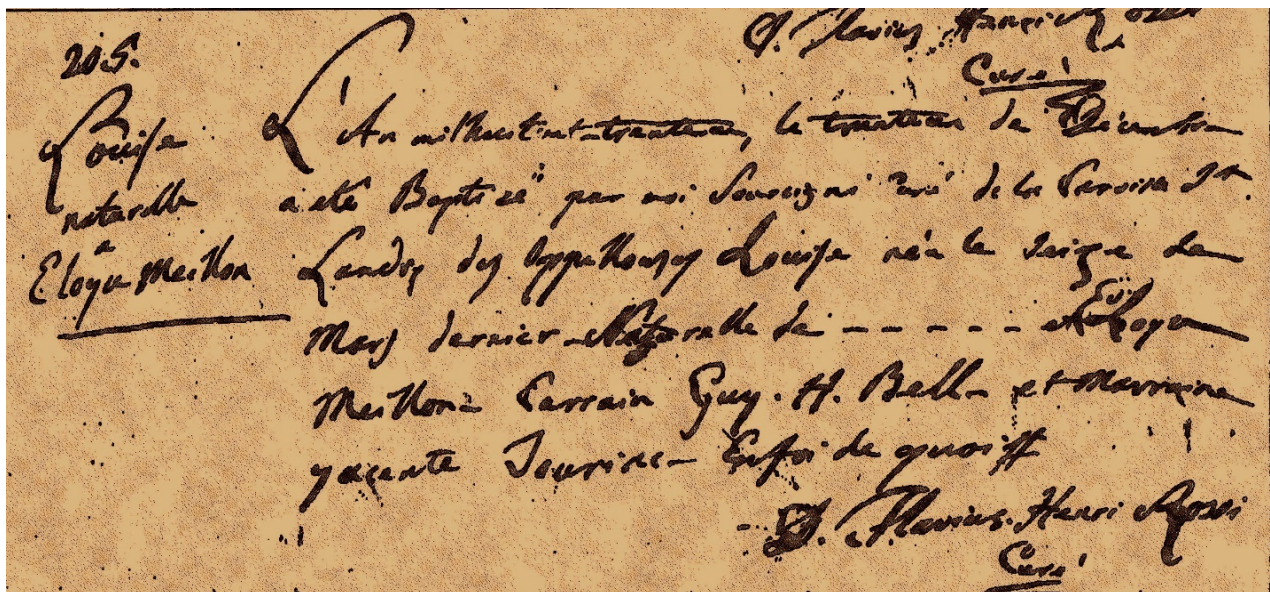 J. Flavius Henri Rossi
Curé
205.
Louise
naturelle
a
Eloye Meillon
L'An mil huit cent trente un, le trente un de Décembre
a eté Baptisé par moi Soussigné Curé de la Paroisse St
Landry des Oppellousas Louise née le Seize de
Mars dernier Naturelle de - - - - - et Eloye
Meillon - Parrain Guy. H. Bell - et Marraine
yacente Tourine - En foi de quoi ff
Flavius Henri Rossi
Curé